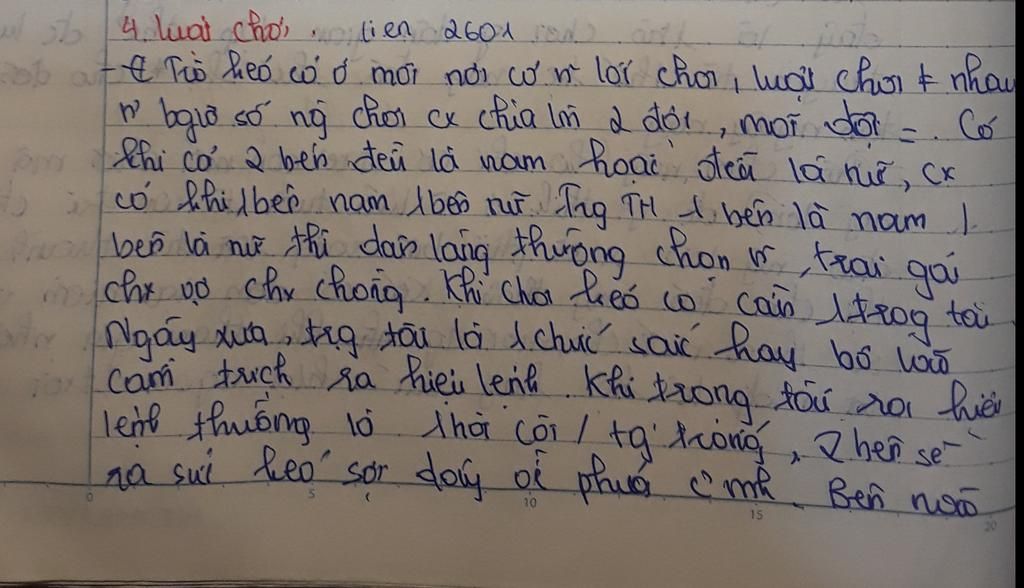 4. Luật chơi. tien 2601
- Trò kéo có ở mỗi nơi có n' lối chơi, luật chơi ≠ nhau
n' bgiờ số ng chơi cx chia làm 2 đội, mỗi đội =. Có
khi có 2 bên đều là nam hoặc đều là nữ, cx
có khi 1 bên nam 1 bên nữ. Trg TH 1 bên là nam 1
bên là nữ thì dân làng thường chọn n', trai gái
chx vợ chx chồng. Khi chơi kéo co cần 1 trọg tài
Ngày xưa, trg tài là 1 chức sắc hay bô lão
cầm trịch ra hiệu lệnh. Khi trọng tài ra hiệu
lệnh thường là 1 hồi còi / tg trống, 2 bên sẽ
ra sức kéo sợi dây về phía c' mh. Bên nào